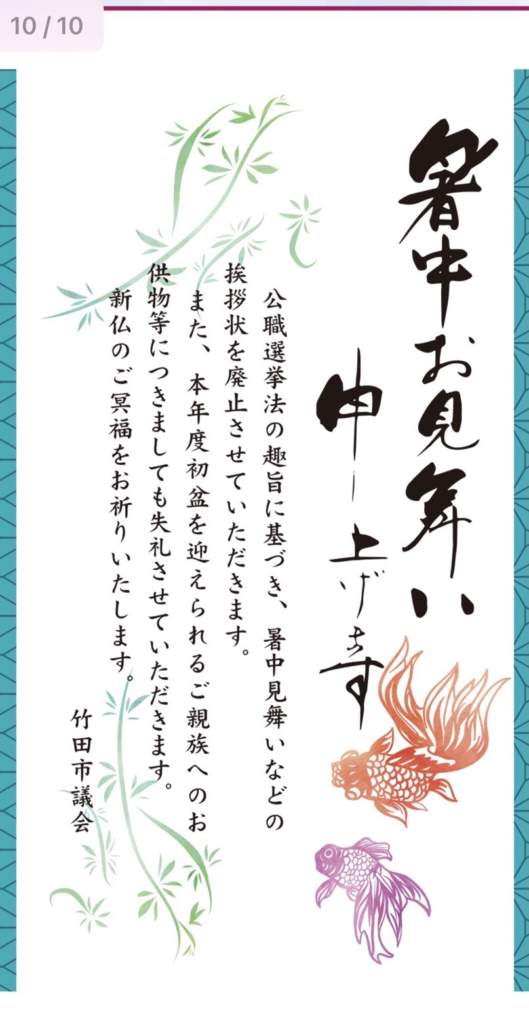 10 / 10
暑中お見舞い
申し上げます
公職選挙法の趣旨に基づき、暑中見舞いなどの
挨拶状を廃止させていただきます。
また、本年度初盆を迎えられるご親族へのお
供物等につきましても失礼させていただきます。
新仏のご冥福をお祈りいたします。
竹田市議会